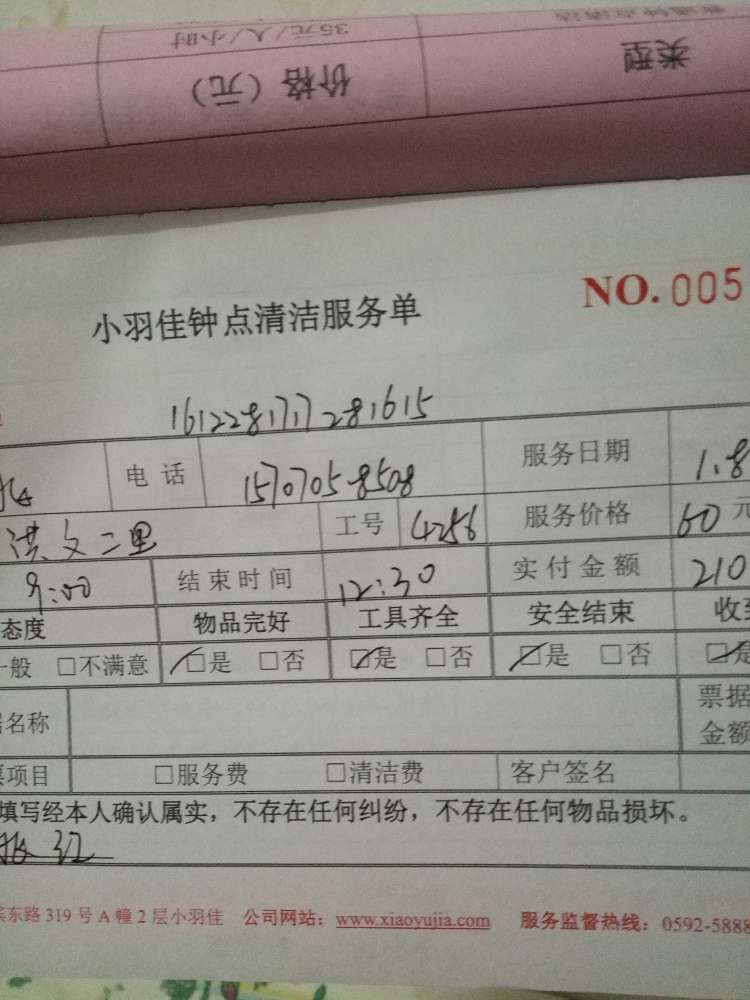 35元/人/小时
价格（元）
类型
小羽佳钟点清洁服务单
NO.005
1612281717281615
电话 15707058508 服务日期 1.8
洪文二里 工号 4256 服务价格 60元
9:00 结束时间 12:30 实付金额 210
态度 物品完好 工具齐全 安全结束 收到
一般 □不满意 □是 □否 □是 □否 □是 □否 □是
名称 票据
金额
项目 □服务费 □清洁费 客户签名
填写经本人确认属实，不存在任何纠纷，不存在任何物品损坏。
红
东路319号A幢2层小羽佳 公司网站：www.xiaoyujia.com 服务监督热线：0592-5888